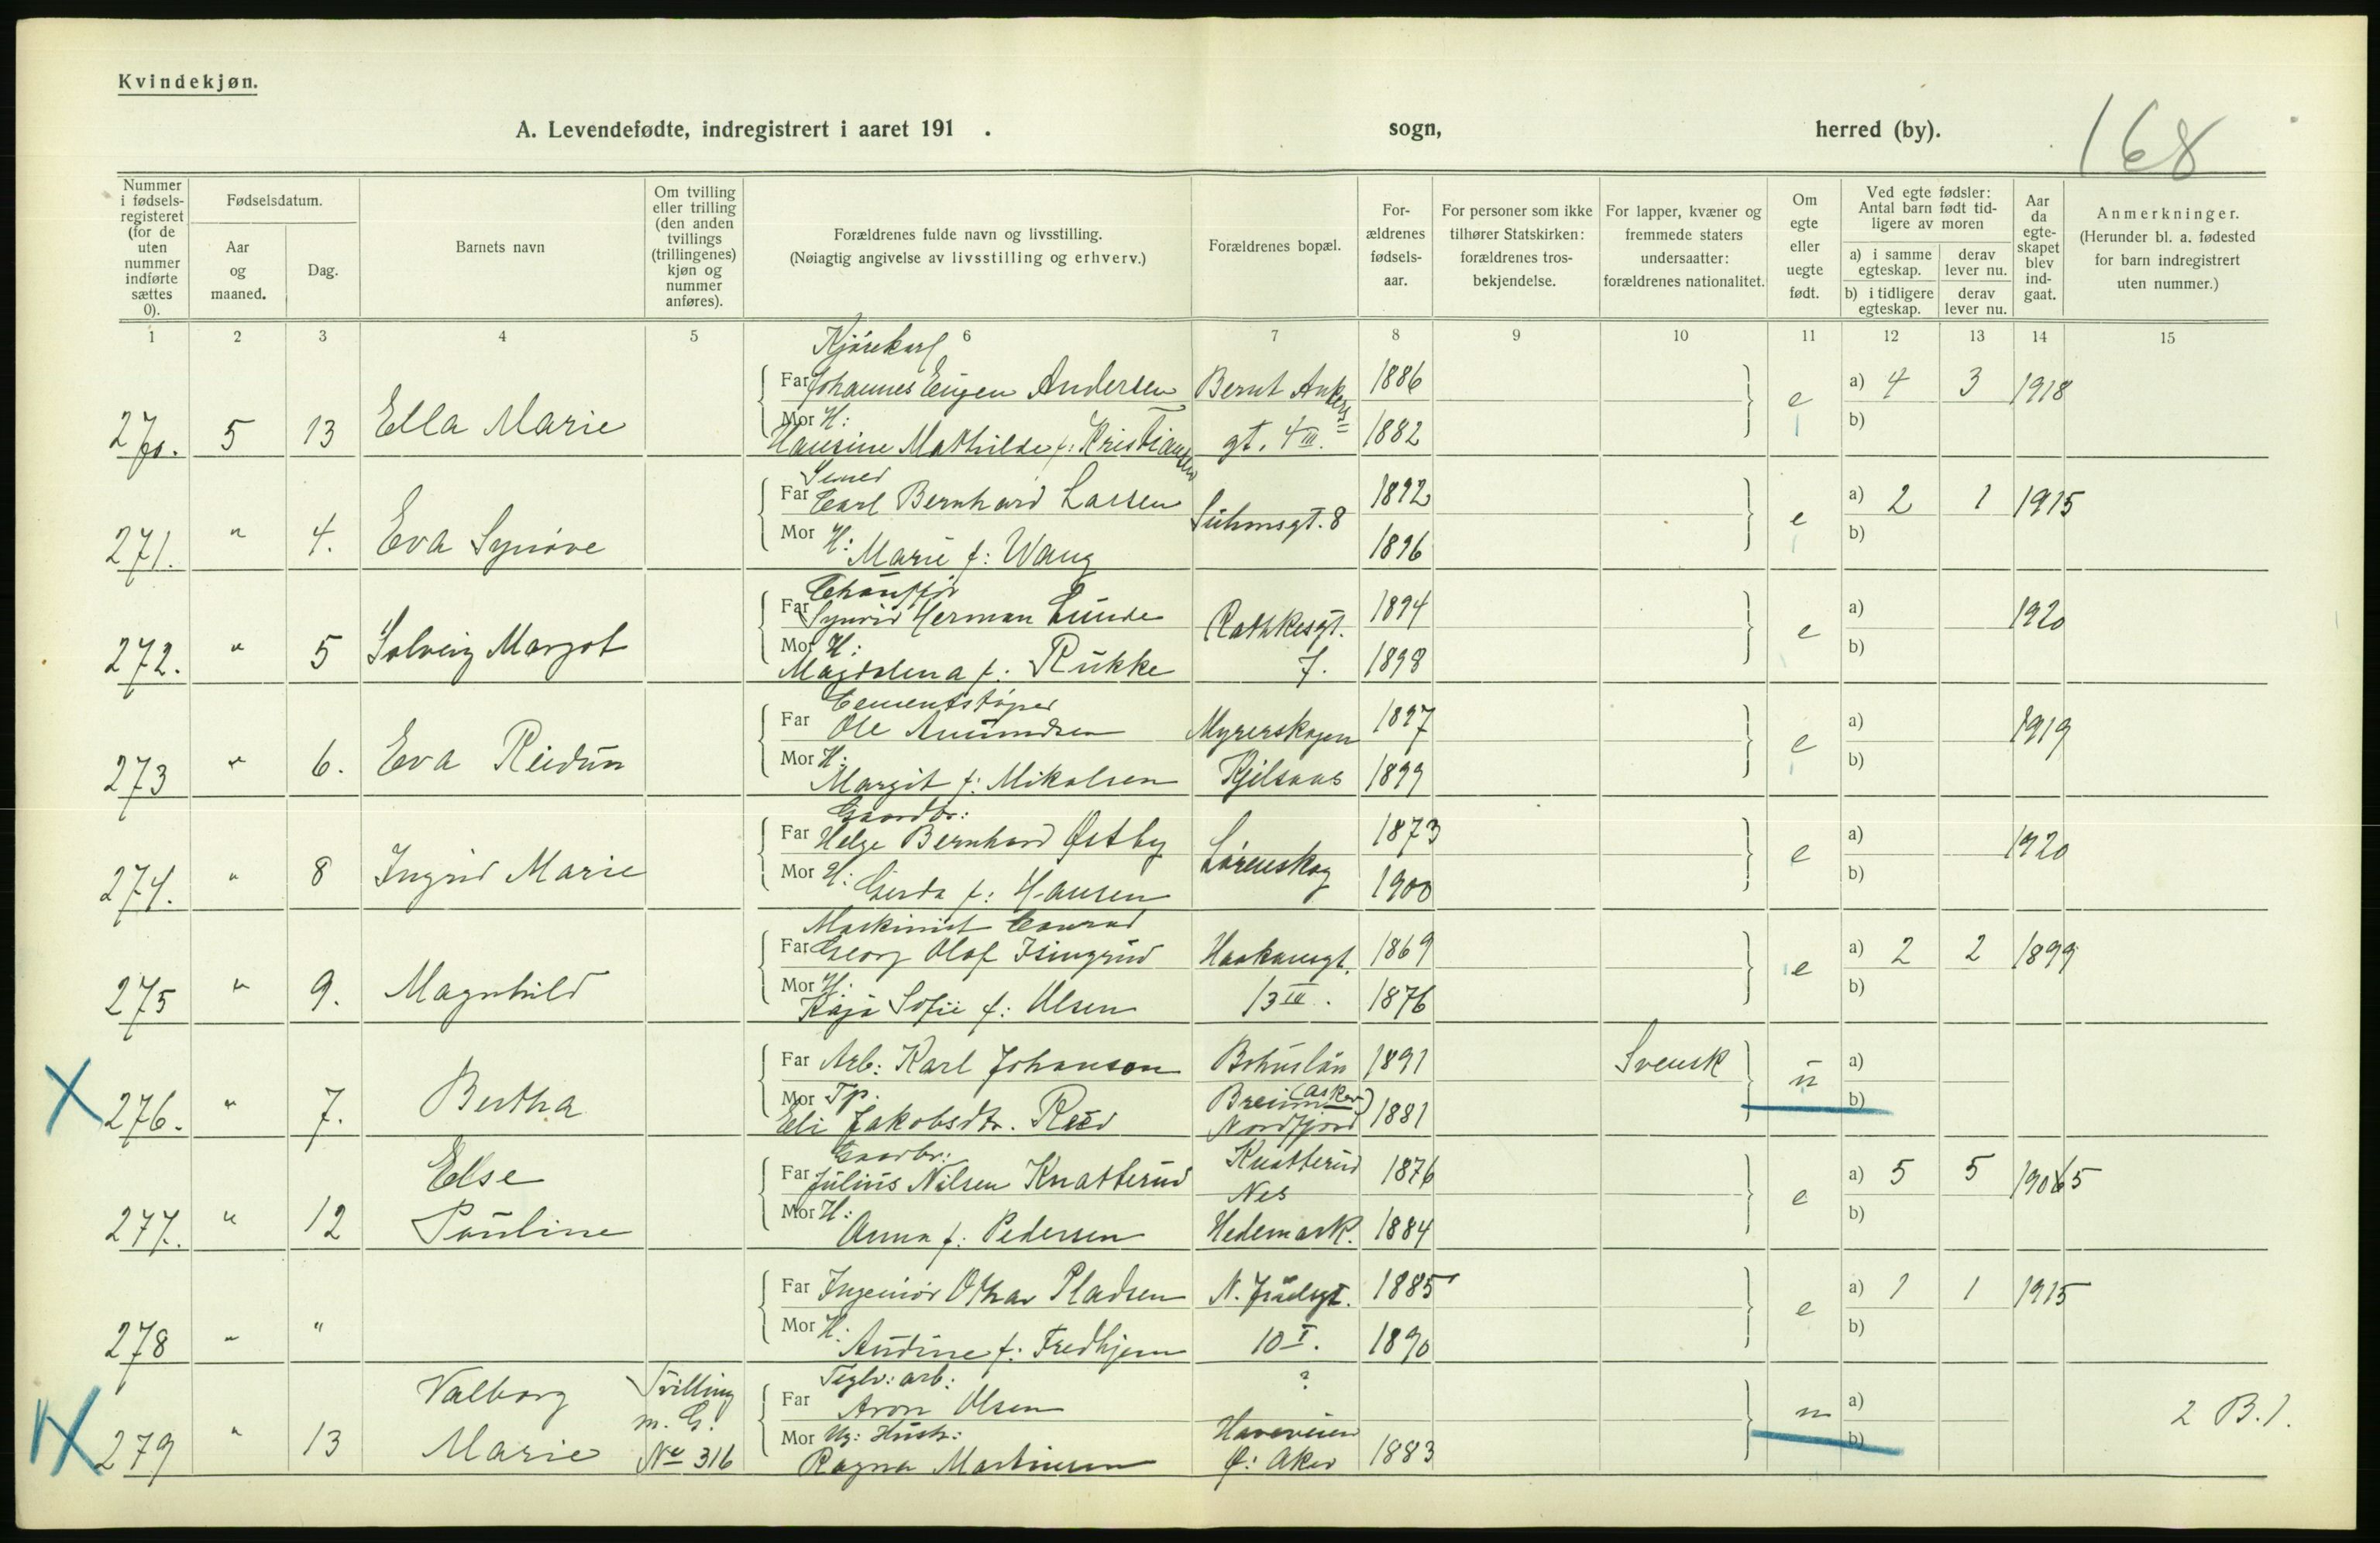 Kvindekjøn.
168
A. Levendefødte, indregistrert i aaret 191 . sogn, herred (by).
Nummer i fødsels-registeret (for de uten nummer indførte sættes 0).
Fødselsdatum.
Aar og maaned.
Dag.
Barnets navn
Om tvilling eller trilling (den anden tvillings (trillingenes) kjøn og nummer anføres).
Forældrenes fulde navn og livsstilling.
(Nøiagtig angivelse av livsstilling og erhverv.)
Forældrenes bopæl.
For-ældrenes fødsels-aar.
For personer som ikke tilhører Statskirken: forældrenes tros-bekjendelse.
For lapper, kvæner og fremmede staters undersaatter: forældrenes nationalitet.
Om egte eller uegte født.
Ved egte fødsler: Antal barn født tid-ligere av moren
a) i samme egteskap.
derav lever nu.
b) i tidligere egteskap.
derav lever nu.
Aar da egte-skapet blev ind-gaat.
Anmerkninger.
(Herunder bl. a. fødested for barn indregistrert uten nummer.)
1 2 3 4 5 6 7 8 9 10 11 12 13 14 15
Kjørekarl
Far Johannes Eugen Andersen Bernt Ankers 1886 a) 4 3 1918
270. 5 13 Ella Marie e
Mor H: Hansine Mathilde f: Kristiansen gt. 4 III. 1882 b)
Far Carl Bernhard Larsen Suhmsgt. 8 1892 a) 2 1 1915
271. " 4. Eva Synøve e
Mor H: Marie f: Wang 1896 b)
Chauffør
Far Sigurd Herman Lunde Rathkesgt. 1894 a) 1920
272. " 5 Solveig Margot e
Mor H: Magdalena f: Rukke 7. 1898 b)
Cementstøper
Far Ole Amundsen Myrerskogen 1897 a) 1919
273 " 6. Eva Reidun e
Mor H: Margit f: Mikalsen Kjelsaas 1899 b)
Gaardbr:
Far Helge Bernhard Østby Lørenskog 1873 a) 1920
274. " 8 Ingrid Marie e
Mor H: Gerda f: Hansen 1900 b)
Maskinist Conrad
Far Georg Olaf Isingrud Haakonsgt. 1869 a) 2 2 1899
275 " 9. Magnhild e
Mor H: Kaja Sofie f: Olsen 13 III. 1876 b)
Far Arb: Karl Johanson Bohuslän 1891 Svensk a)
X 276. " 7. Bertha u
Mor Tp. Eli Jakobsdtr. Reed Breim (Asker) Nordfjord 1881 b)
Gaardbr:
Far Julius Nilsen Knatterud Knatterud 1876 a) 5 5 1905
277. " 12 Else Pauline Nes e
Mor H: Anna f: Pedersen Hedemark. 1884 b)
Far Ingeniør Othar Pladsen N. Juelsgt. 1885 a) 1 1 1915
278 " " e
Mor H: Andine f: Fredhjem 10 I. 1890 b)
Teglv: arb: ?
Far Aron Olsen a)
X 279 " 13 Valborg Marie Tvilling m. G. No 316 u 2 B. 1.
Mor Ug: Hush: Ragna Martinsen Haveveien Ø: Aker 1883 b)